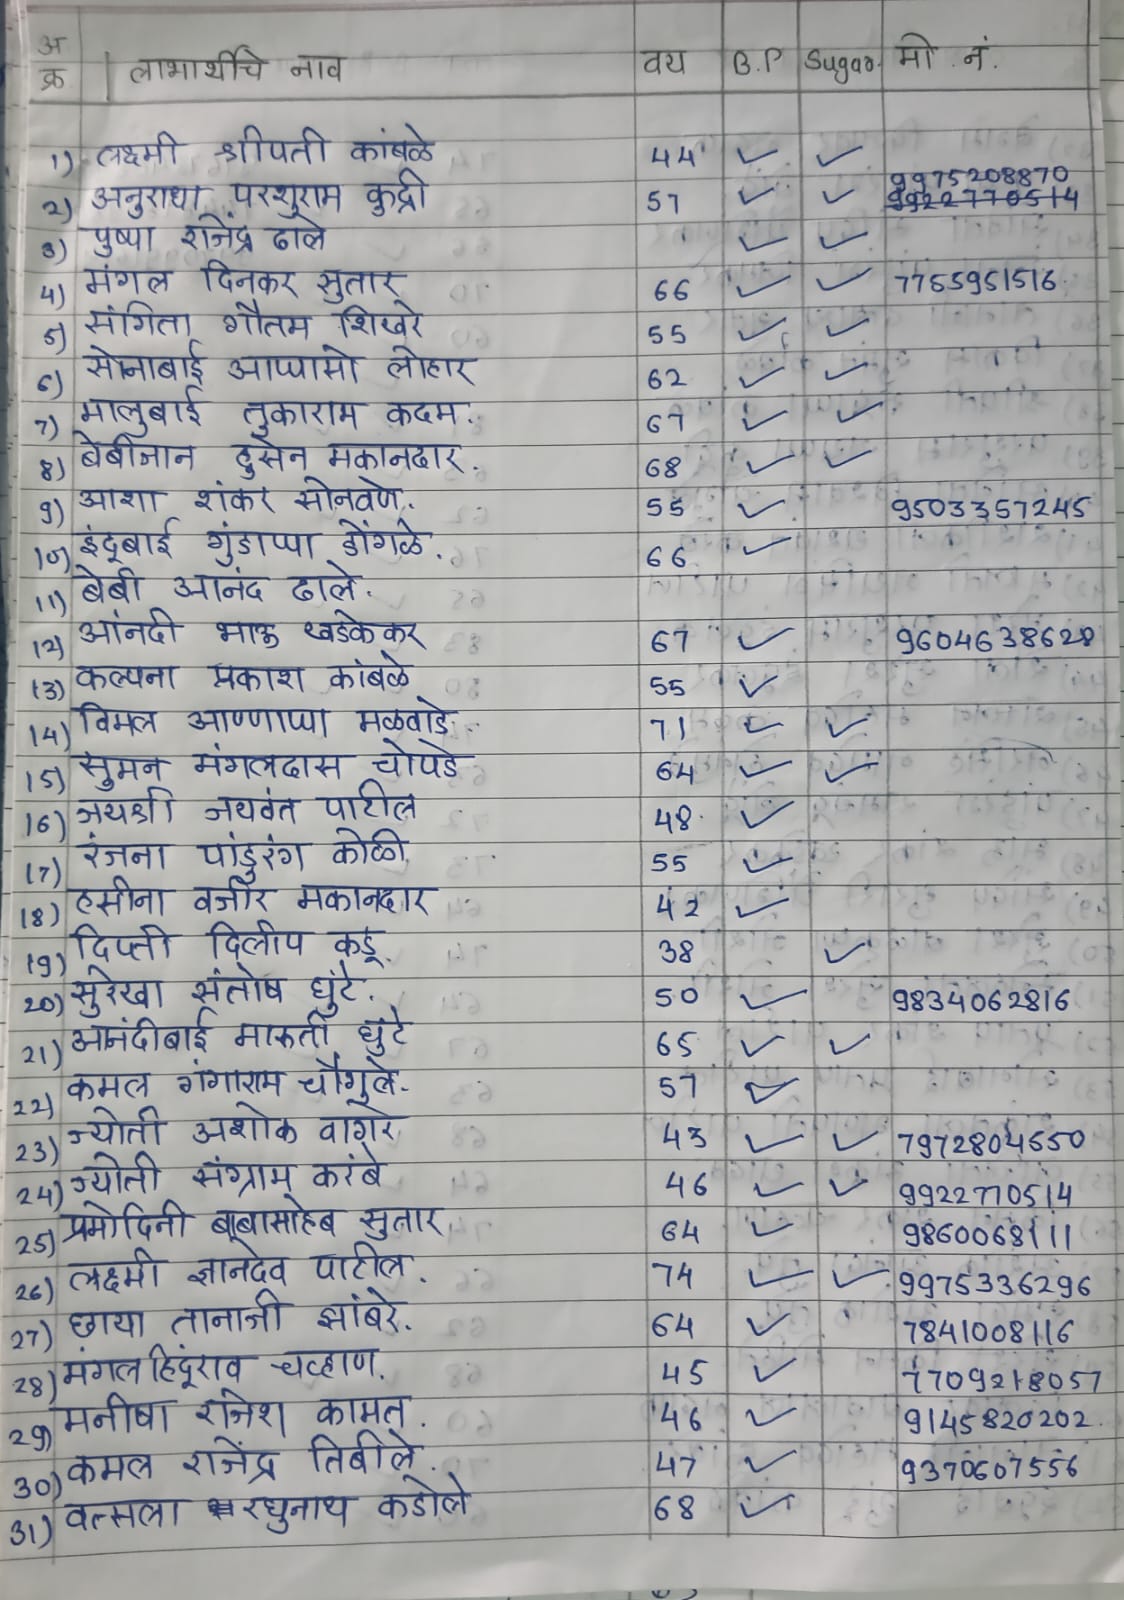 अ क्र लाभार्थीचे नाव वय B.P Sugar. मो. नं.
1) लक्ष्मी श्रीपती कांबळे 44 ✓ ✓
2) अनुराधा परशुराम कुद्री 57 ✓ ✓ 9975208870 9922770514
3) पुष्पा राजेंद्र ढाले ✓ ✓
4) मंगल दिनकर सुतार 66 ✓ ✓ 7755951516
5) संगिता गौतम शिखरे 55 ✓ ✓
6) सोनाबाई आप्पासो लोहार 62 ✓ ✓
7) मालुबाई तुकाराम कदम. 67 ✓ ✓
8) बेबीजान हुसेन मकानदार. 68 ✓ ✓
9) आशा शंकर सोनवणे. 55 ✓ 9503357245
10) इंदूबाई गुंडाप्पा डोंगळे. 66 ✓
11) बेबी आनंद ढाले.
12) आंनदी भाऊ खडकेकर 67 ✓ 9604638628
13) कल्पना प्रकाश कांबळे 55 ✓
14) विमल आण्णाप्पा मळवाडे 71 ✓ ✓
15) सुमन मंगलदास चोपडे 64 ✓ ✓
16) जयश्री जयवंत पाटील 48 ✓
17) रंजना पांडुरंग कोळी 55 ✓
18) हसीना वजीर मकानदार 42 ✓
19) दिप्ती दिलीप कडू. 38 ✓
20) सुरेखा संतोष घुंटे. 50 ✓ 9834062816
21) आनंदीबाई मारुती घुंटे 65 ✓ ✓
22) कमल गंगाराम चौगुले. 57 ✓
23) ज्योती अशोक वागरे 43 ✓ ✓ 7972804550
24) ज्योती संग्राम करंबे 46 ✓ ✓ 9922770514
25) प्रमोदिनी बाबासाहेब सुतार 64 ✓ 9860068111
26) लक्ष्मी ज्ञानदेव पाटील. 74 ✓ ✓ 9975336296
27) छाया तानाजी झांबरे. 64 ✓ 7841008116
28) मंगल हिंदूराव चव्हाण. 45 ✓ 7709218057
29) मनीषा राजेश कामत. 46 ✓ 9145820202
30) कमल राजेंद्र तिबीले. 47 ✓ 9370607556
31) वत्सला रघुनाथ कडोले 68 ✓